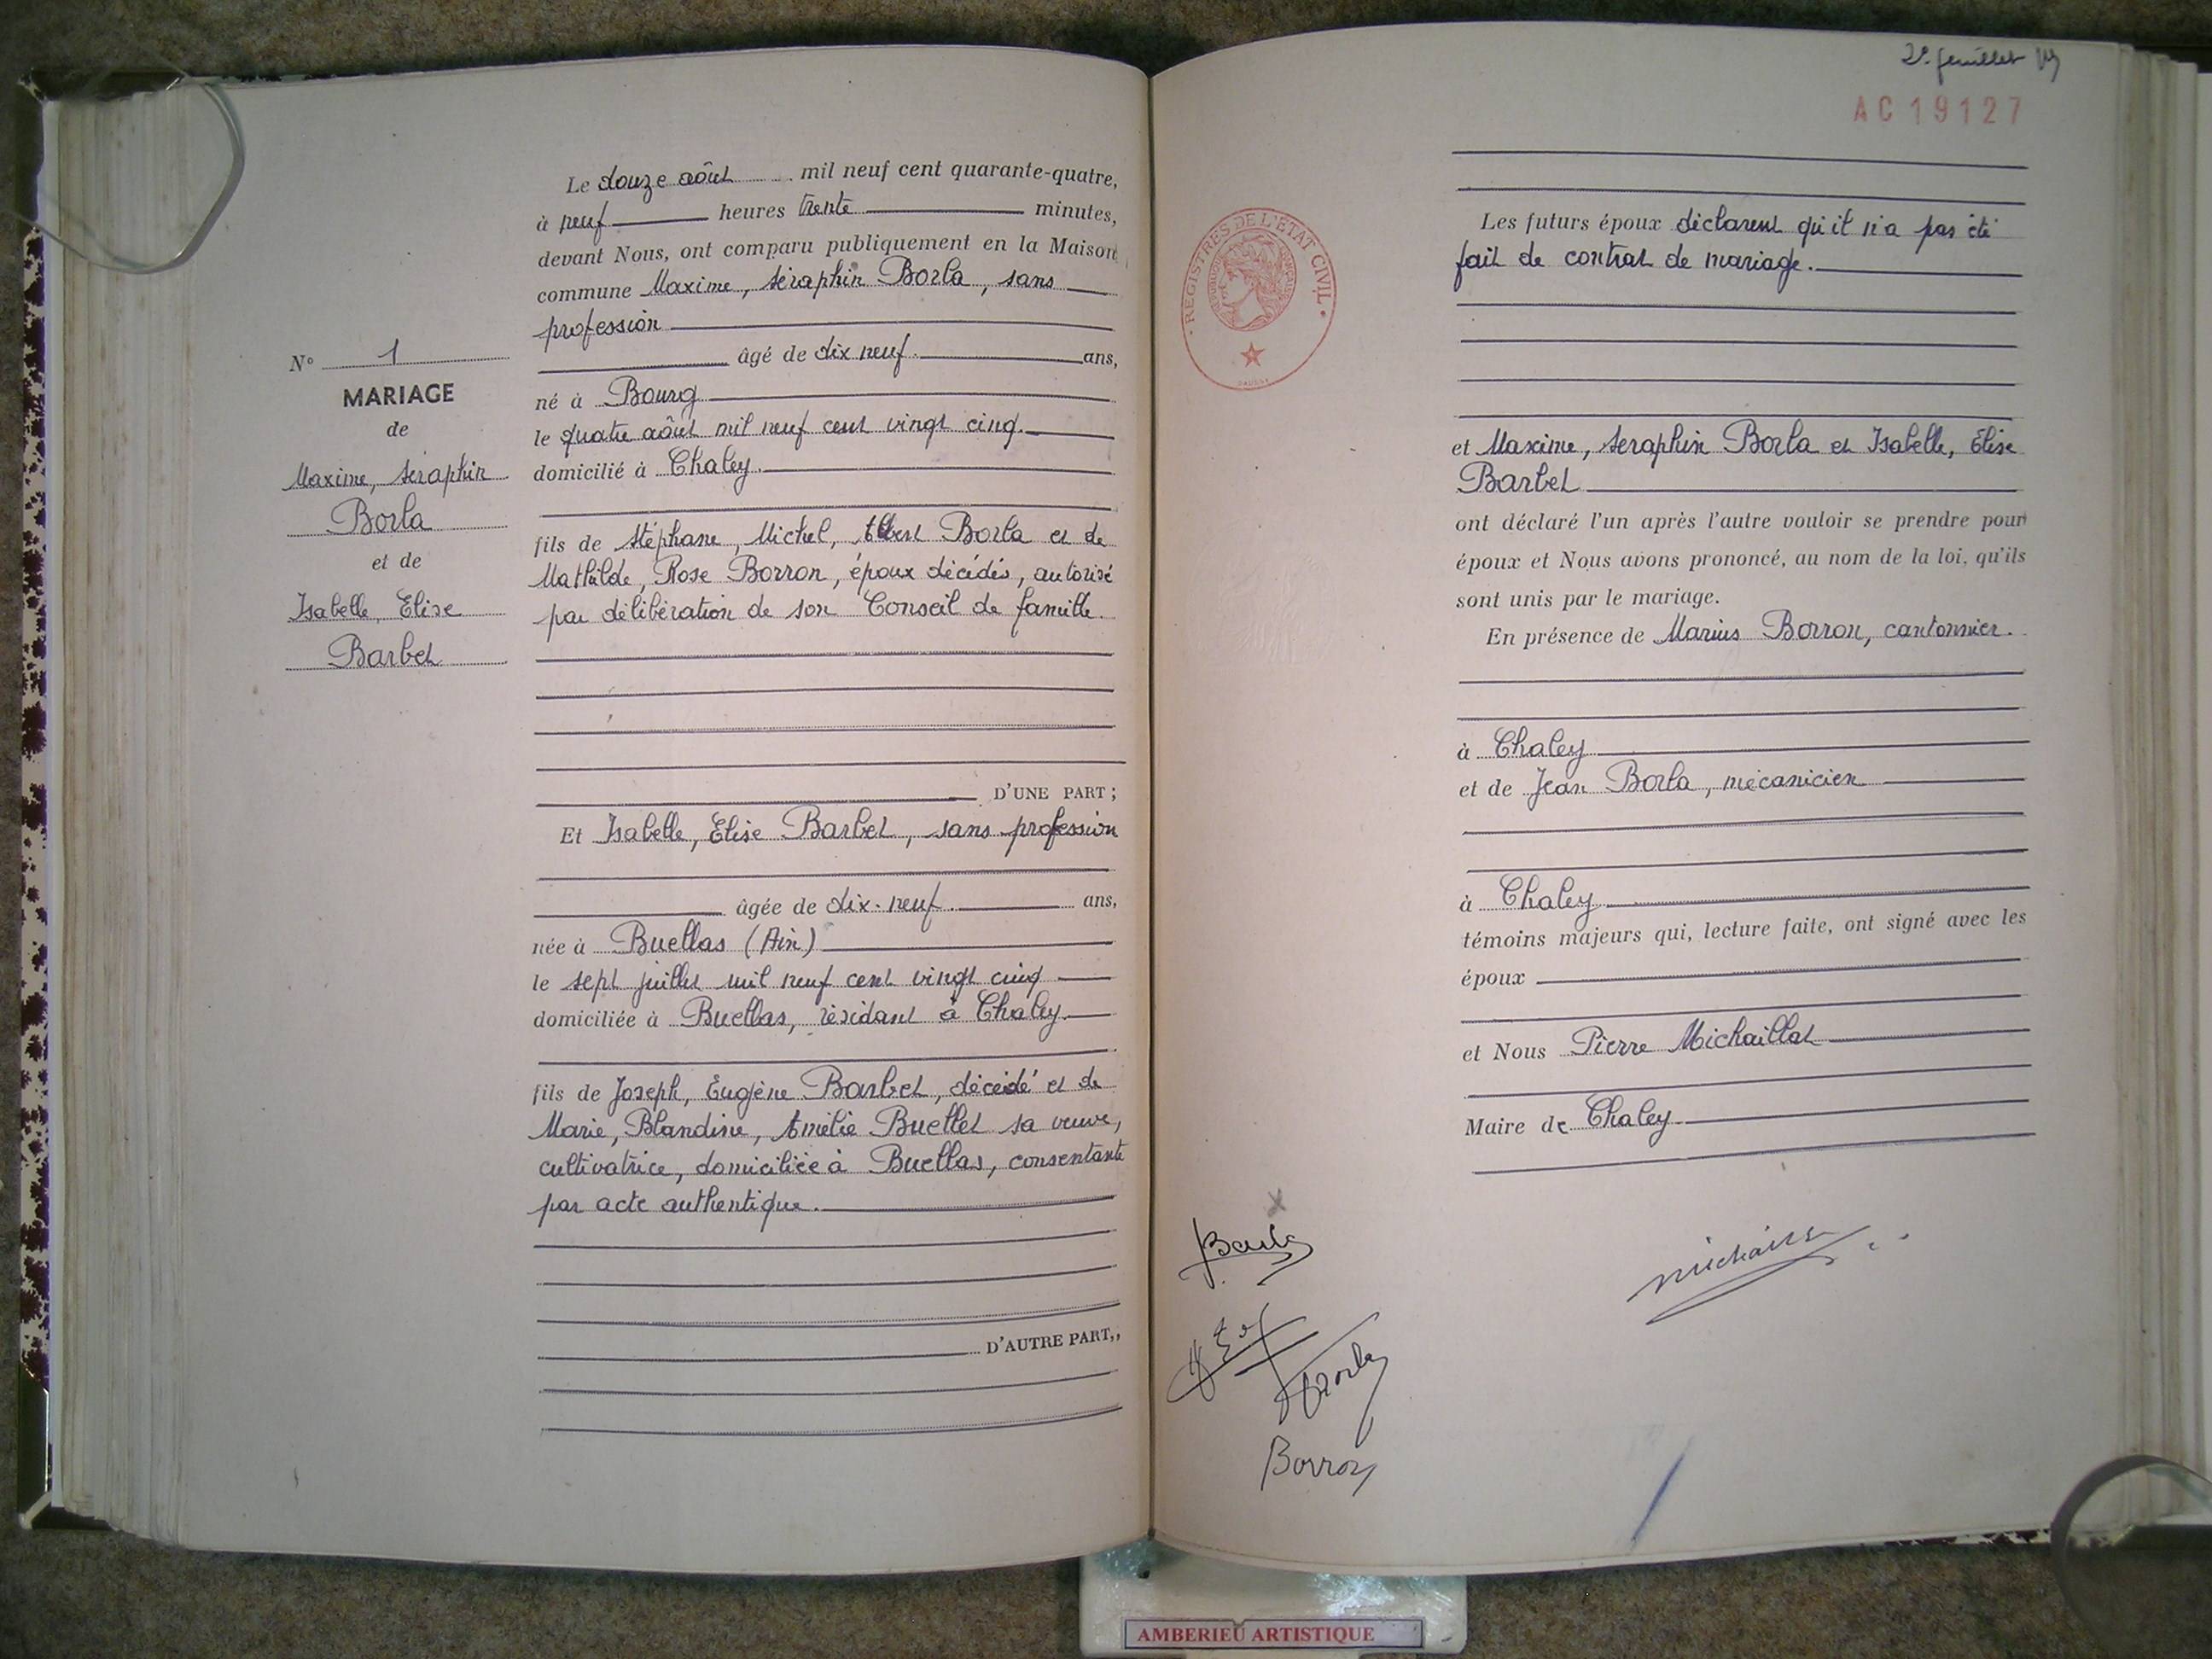 N° 1
MARIAGE
de
Maxime, Séraphin
Borla
et de
Isabelle, Elise
Barbet
Le douze août mil neuf cent quarante-quatre,
à neuf heures trente minutes,
devant Nous, ont comparu publiquement en la Maison
commune Maxime, Séraphin Borla, sans
profession
âgé de dix neuf. ans,
né à Bourg
le quatre août mil neuf cent vingt cinq.
domicilié à Chaley.
fils de Stéphane, Michel, Albert Borla et de
Mathilde, Rose Borron, époux décédés, autorisé
par délibération de son Conseil de famille.
D'UNE PART ;
Et Isabelle, Elise Barbet, sans profession
âgée de dix-neuf. ans,
née à Buellas (Ain)
le sept juillet mil neuf cent vingt cinq
domiciliée à Buellas, résidant à Chaley.
fils de Joseph, Eugène Barbet, décédé et de
Marie, Blandine, Amélie Buellet sa veuve,
cultivatrice, domiciliée à Buellas, consentante
par acte authentique.
D'AUTRE PART,,
2e feuillet
AC19127
REGISTRES DE L'ÉTAT CIVIL
Les futurs époux déclarent qu'il n'a pas été
fait de contrat de mariage.
et Maxime, Seraphin Borla et Isabelle, Elise
Barbet
ont déclaré l'un après l'autre vouloir se prendre pour
époux et Nous avons prononcé, au nom de la loi, qu'ils
sont unis par le mariage.
En présence de Marius Borron, cantonnier.
à Chaley
et de Jean Borla, mécanicien
à Chaley
témoins majeurs qui, lecture faite, ont signé avec les
époux
et Nous Pierre Michaillat
Maire de Chaley
Borla
Borron
AMBERIEU ARTISTIQUE